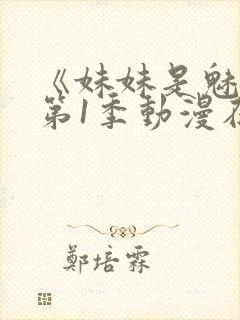 《妹妹是魅
第1季動漫在
鄭培霖